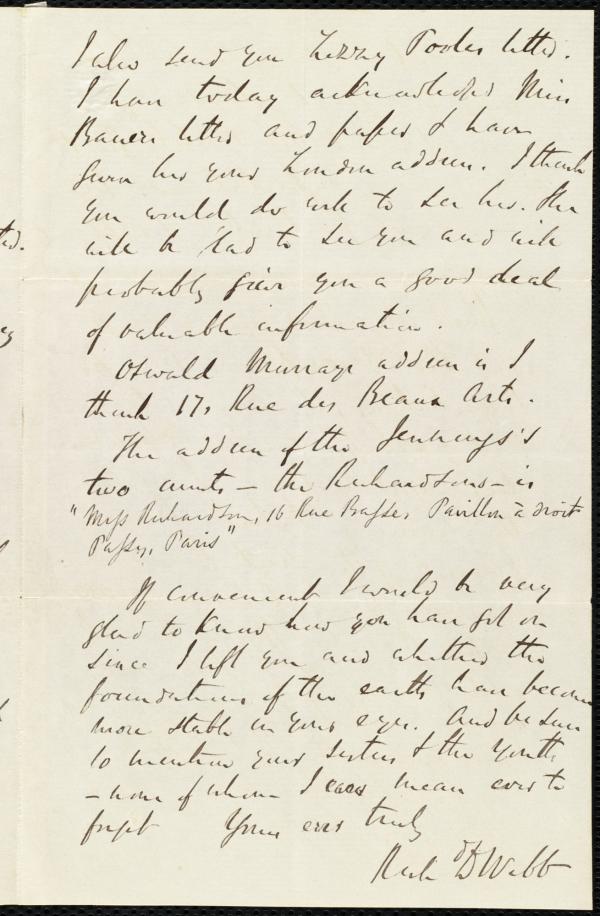 I also send you Lizzy Pooles letter.
I have today acknowledged Miss
letter and paper & have
given her your London address. I think
you would do well to see her. She
will be glad to see you and will
probably give you a good deal
of valuable information.
Oswald Murrays address is I
think 17, Rue des Beaux Arts.
The address of the Jennings's
two aunts — the Richardsons — is
"Miss Richardson, 16 Rue Basse, Pavillon à droit
Passy, Paris"
If convenient I would be very
glad to know how you have got on
since I left you and whether the
foundations of the earth have become
more stable in your eyes. And be sure
to mention your sisters & the youth
— none of whom I mean ever to
forget Yours ever truly
Richd D Webb
ted.